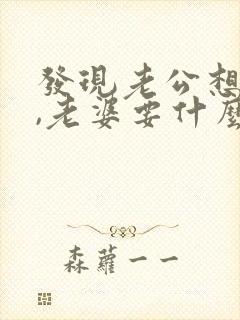 發現老公想
,老婆要什麼
森蘿一一